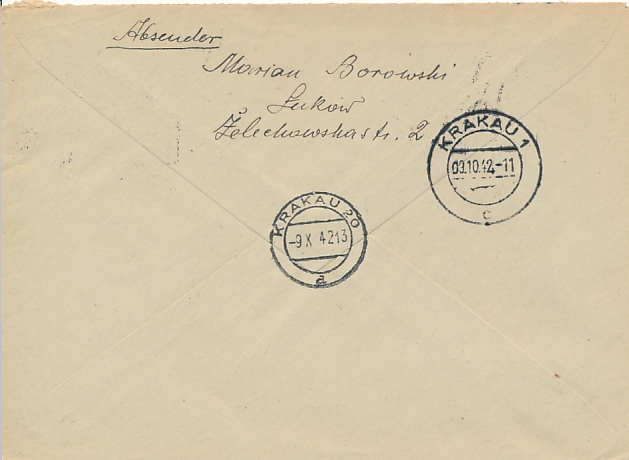 Absender
Marian Borowski
Łuków
Żelechowskastr. 2
KRAKAU 1
09.10.42-11
c
KRAKAU 20
-9.X 4213
a